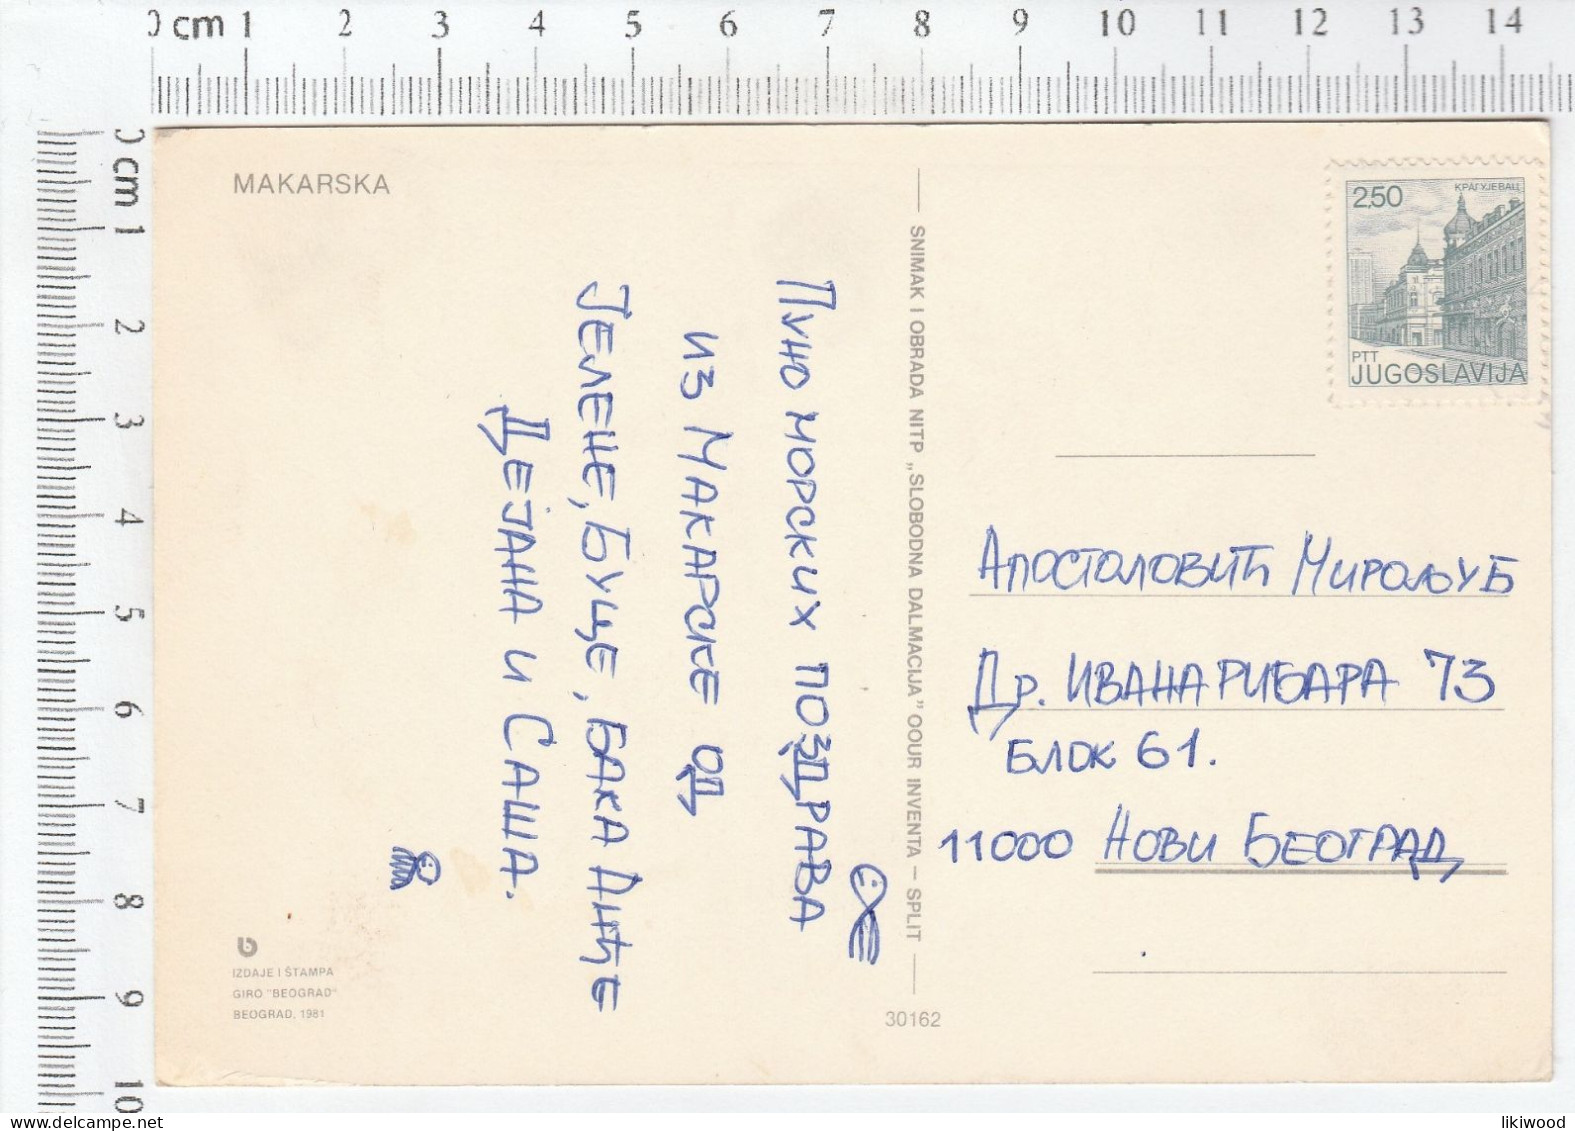 0 cm 1 2 3 4 5 6 7 8 9 10 11 12 13 14
0 cm 1 2 3 4 5 6 7 8 9 10
MAKARSKA
Пуно морских поздрава
из Макарске од
Јелене, Буце, бака Анђе
Дејана и Саша.
IZDAJE I ŠTAMPA
GIRO "BEOGRAD"
BEOGRAD, 1981
SNIMAK I OBRADA NITP „SLOBODNA DALMACIJA” OOUR INVENTA – SPLIT
30162
2,50
КРАГУЈЕВАЦ
PTT
JUGOSLAVIJA
Апостоловић Мирољуб
Др. Ивана Рибара 73
Блок 61.
11000 Нови Београд
likiwood